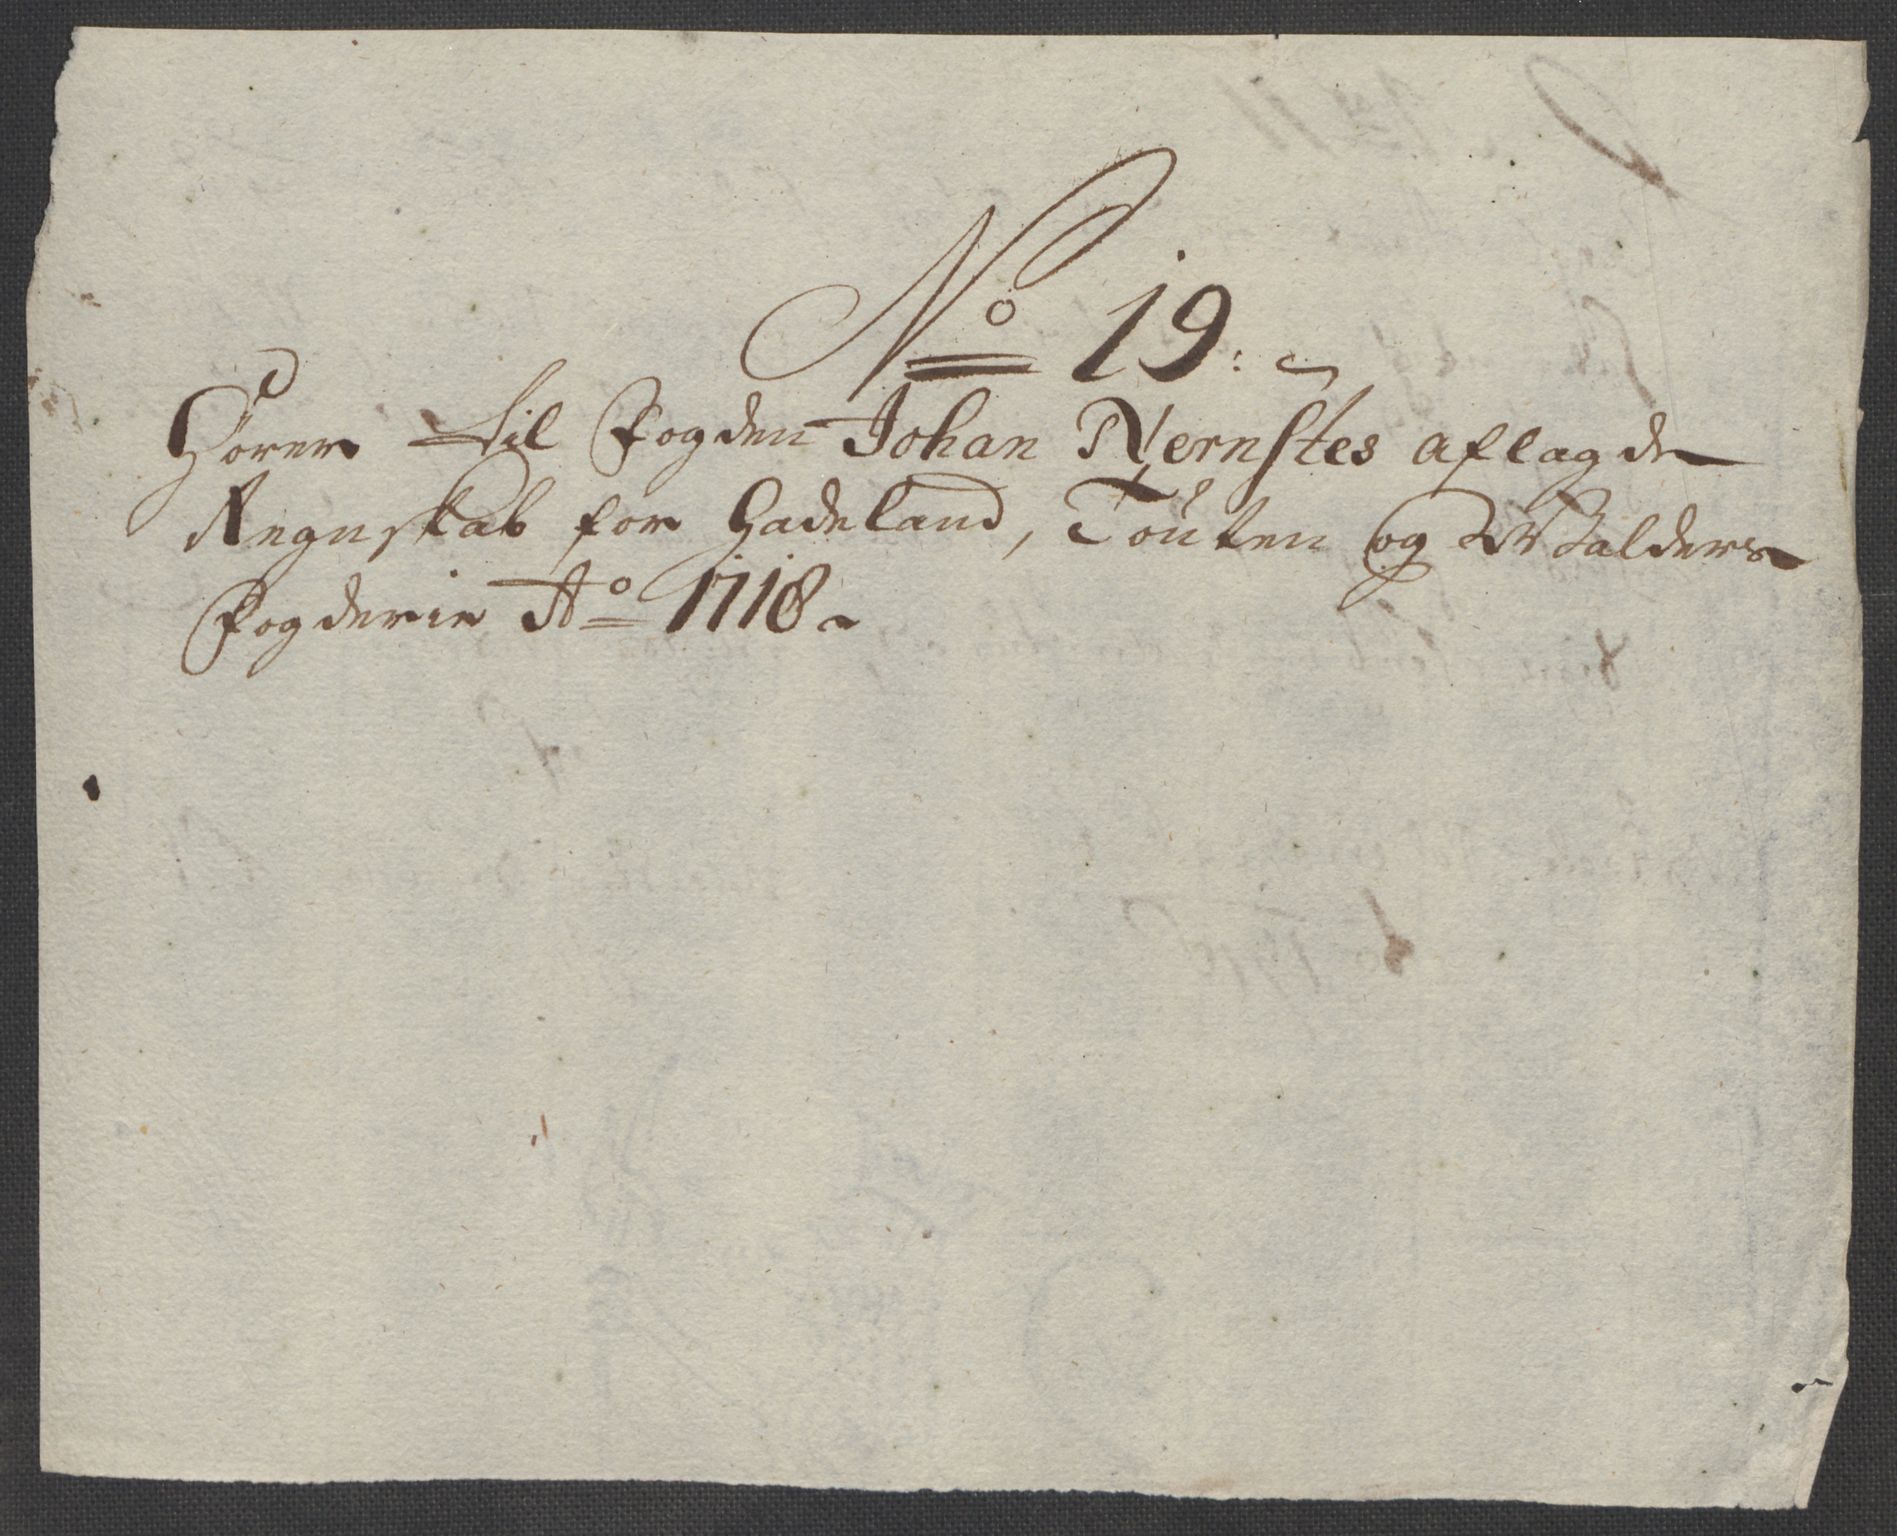 No 19.
Hörer til Fogden Johan Nernstes aflagde
Regnskab for Hadeland, Toüten og Walders
Fogderie Ao 1718